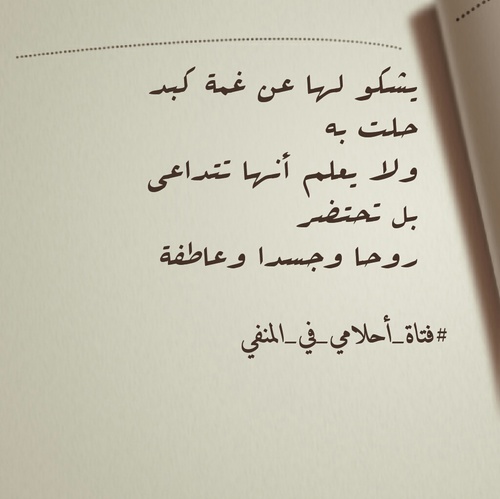 يشكو لها عن غمة كبد
حلت به
ولا يعلم أنها تتداعى
بل تحتضر
روحا وجسدا وعاطفة
#فتاة_أحلامي_في_المنفي